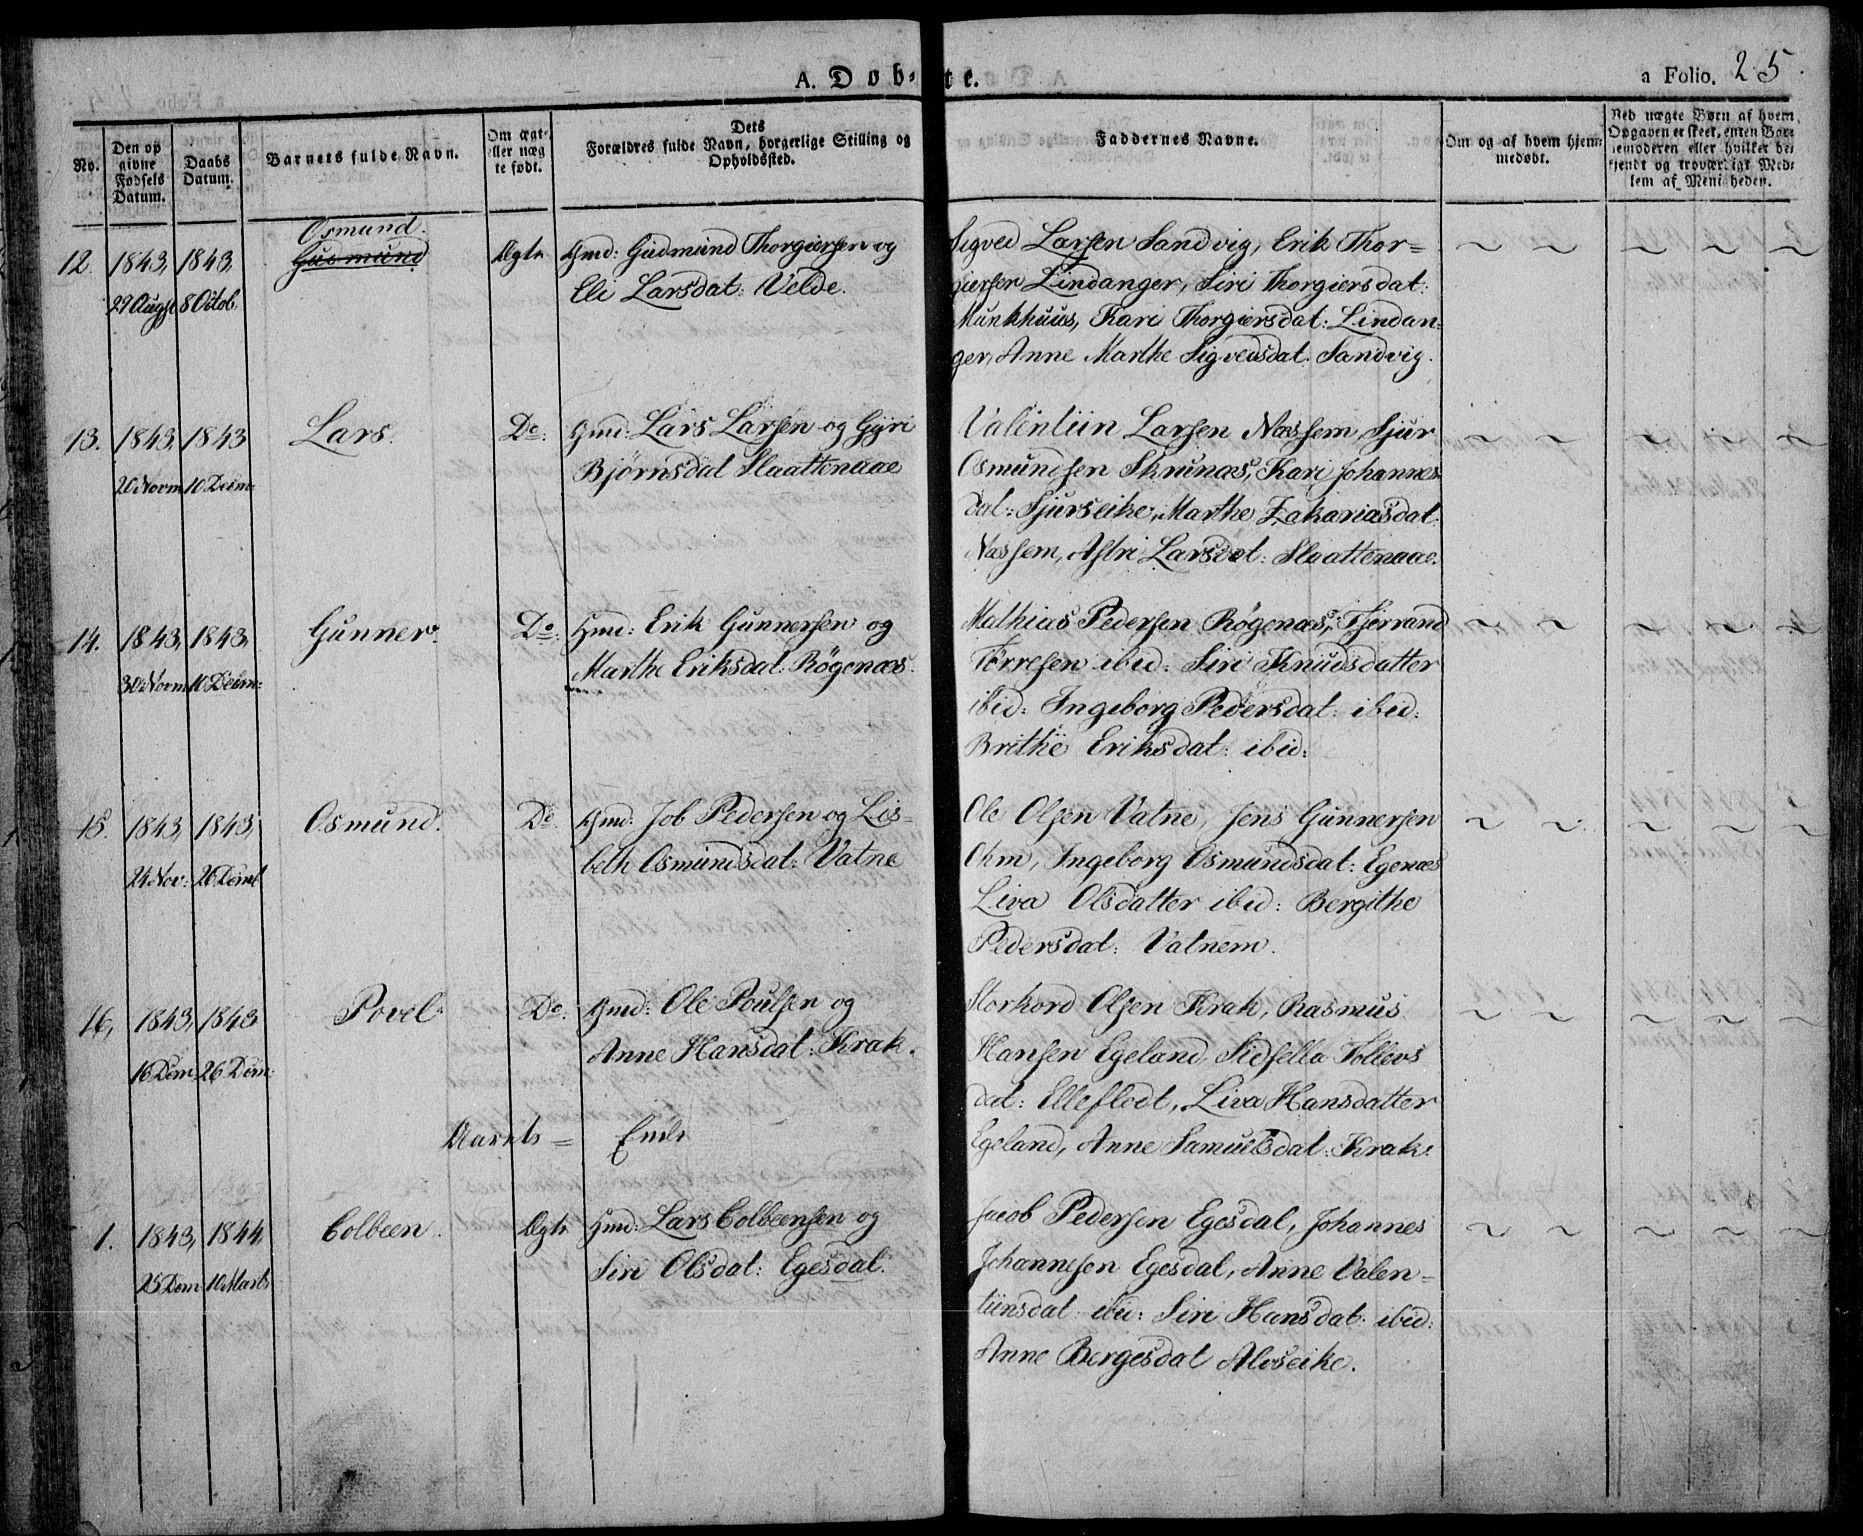 A. Døb-te. a Folio. 25.
No.
Den op
givne
Fødsels
Datum.
Daabs
Datum.
Barnets fulde Navn.
Om ægt-
eller næg
te født.
Dets
Forældres fulde Navn, borgerlige Stilling og
Opholdssted.
Faddernes Navne.
Om og af hvem hjem-
medøbt.
Ved uægte Børn af hvem
Opgaven er skeet, enten Bar-
nemoderen eller hvilket be-
kjendt og troværdigt Med-
lem af Menigheden.
12 1843, 1843, Osmund.
Gudmund Ægte Gmd: Gudmund Thorgiersen og
29 Augst 8 Octob. Eli Larsdat: Velde.
Sigved Larsen Sandvig, Erik Thor=
giersen Lindanger, Siri Thorgiersdat:
Munkhuus, Kari Thorgiersdat: Lindan=
ger, Anne Marthe Sigvedsdat. Sandvig.
13. 1843, 1843 Lars. Do: Gmd: Lars Larsen og Gyri
20 Novm 10 Decm: Bjørnsdat Slaattenaae
Valentiin Larsen Næssem, Sjur
Osmundsen Skrunæs, Kari Johannes
dat: Sjurseike, Marthe Zakariasdat:
Næssem, Astri Larsdat: Slaattenaae.
14. 1843, 1843, Gunner. Do: Gmd: Erik Gunnersen og
30 Novm 10 Decm: Marthe Eriksdat: Røgenæs
Mathias Pedersen Røgenæs, Tjerrand
Torresen ibid: Siri Knudsdatter
ibid: Ingeborg Pedersdat: ibid:
Brithe Eriksdat: ibid:
15. 1843, 1843, Osmund. Do. Gmd: Job Pedersen og Lis-
24 Nov: 26 Decmb beth Osmundsdat: Vatne
Ole Olsen Vatne, Jens Gunnersen
Ohm, Ingeborg Osmundsdat: Egenæs
Liva Olsdatter ibid: Bergithe
Pedersdat: Vatnem.
16, 1843, 1843 Povel. Do: Gmd: Ole Poulsen og
16 Decm: 26 Decm: Anne Hansdat: Krak.
Storkord Olsen Krak, Rasmus
Hansen Egeland, Sidsella Tollevs
dat: Elleflodt, Liva Hansdatter
Egeland, Anne Samuelsdat: Krak.
Aarets = Ende
1. 1843, 1844. Colbeen. Ægte Gmd: Lars Colbeensen og
25 Decm 10 Marts Siri Olsdat: Egesdal.
Jacob Pedersen Egesdal, Johannes
Johannesen Egesdal, Anne Valen=
tiinsdat ibid: Siri Hansdat: ibid:
Anne Bergesdat Alvseike.